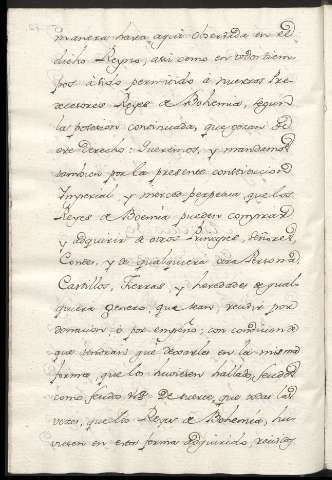 manera hasta aqui observada en el
dicho Reyno, assi como en todos tiem
pos à sido permitido a nuestros Pre-
decesores Reyes de Bohemia, segun
la posesion continuada, que gozan de
este derecho: Queremos, y mandamos
tambien por la presente constitucion
Imperial y merced perpetua, que los
Reyes de Boemia pueden comprar
y adquirir de otros Principes, Señores,
Condes, y de qualquiera otra Persona
Castillos, Tierras, y heredades de qual
quiera genero, que sean, recivir por
donacion, ò por empeño; con condicion de
que tendran que dexarlas en la misma
forma, que los huviesen hallado, feudos
como feudo De suerte, que todas las
vezes, que los Reyes de Bohemia, hu
viesen en esta forma adquirido,